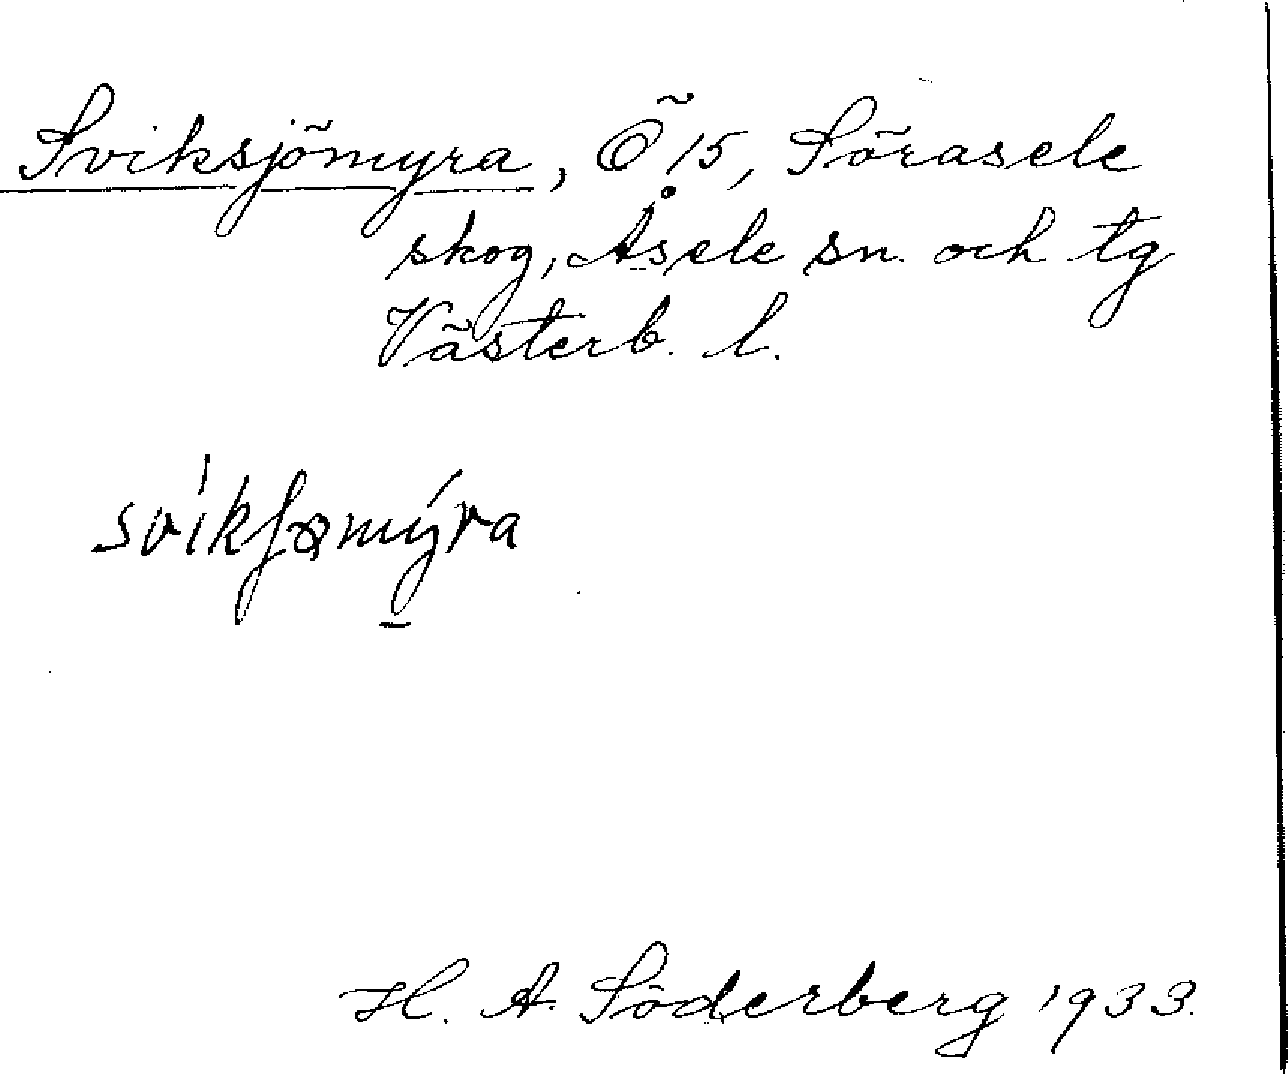 Sviksjömyra, Ö 15, Söråsele
skog, Åsele sn. och tg
Västerb. l.
svíkʃømýra
H. A. Söderberg 1933.